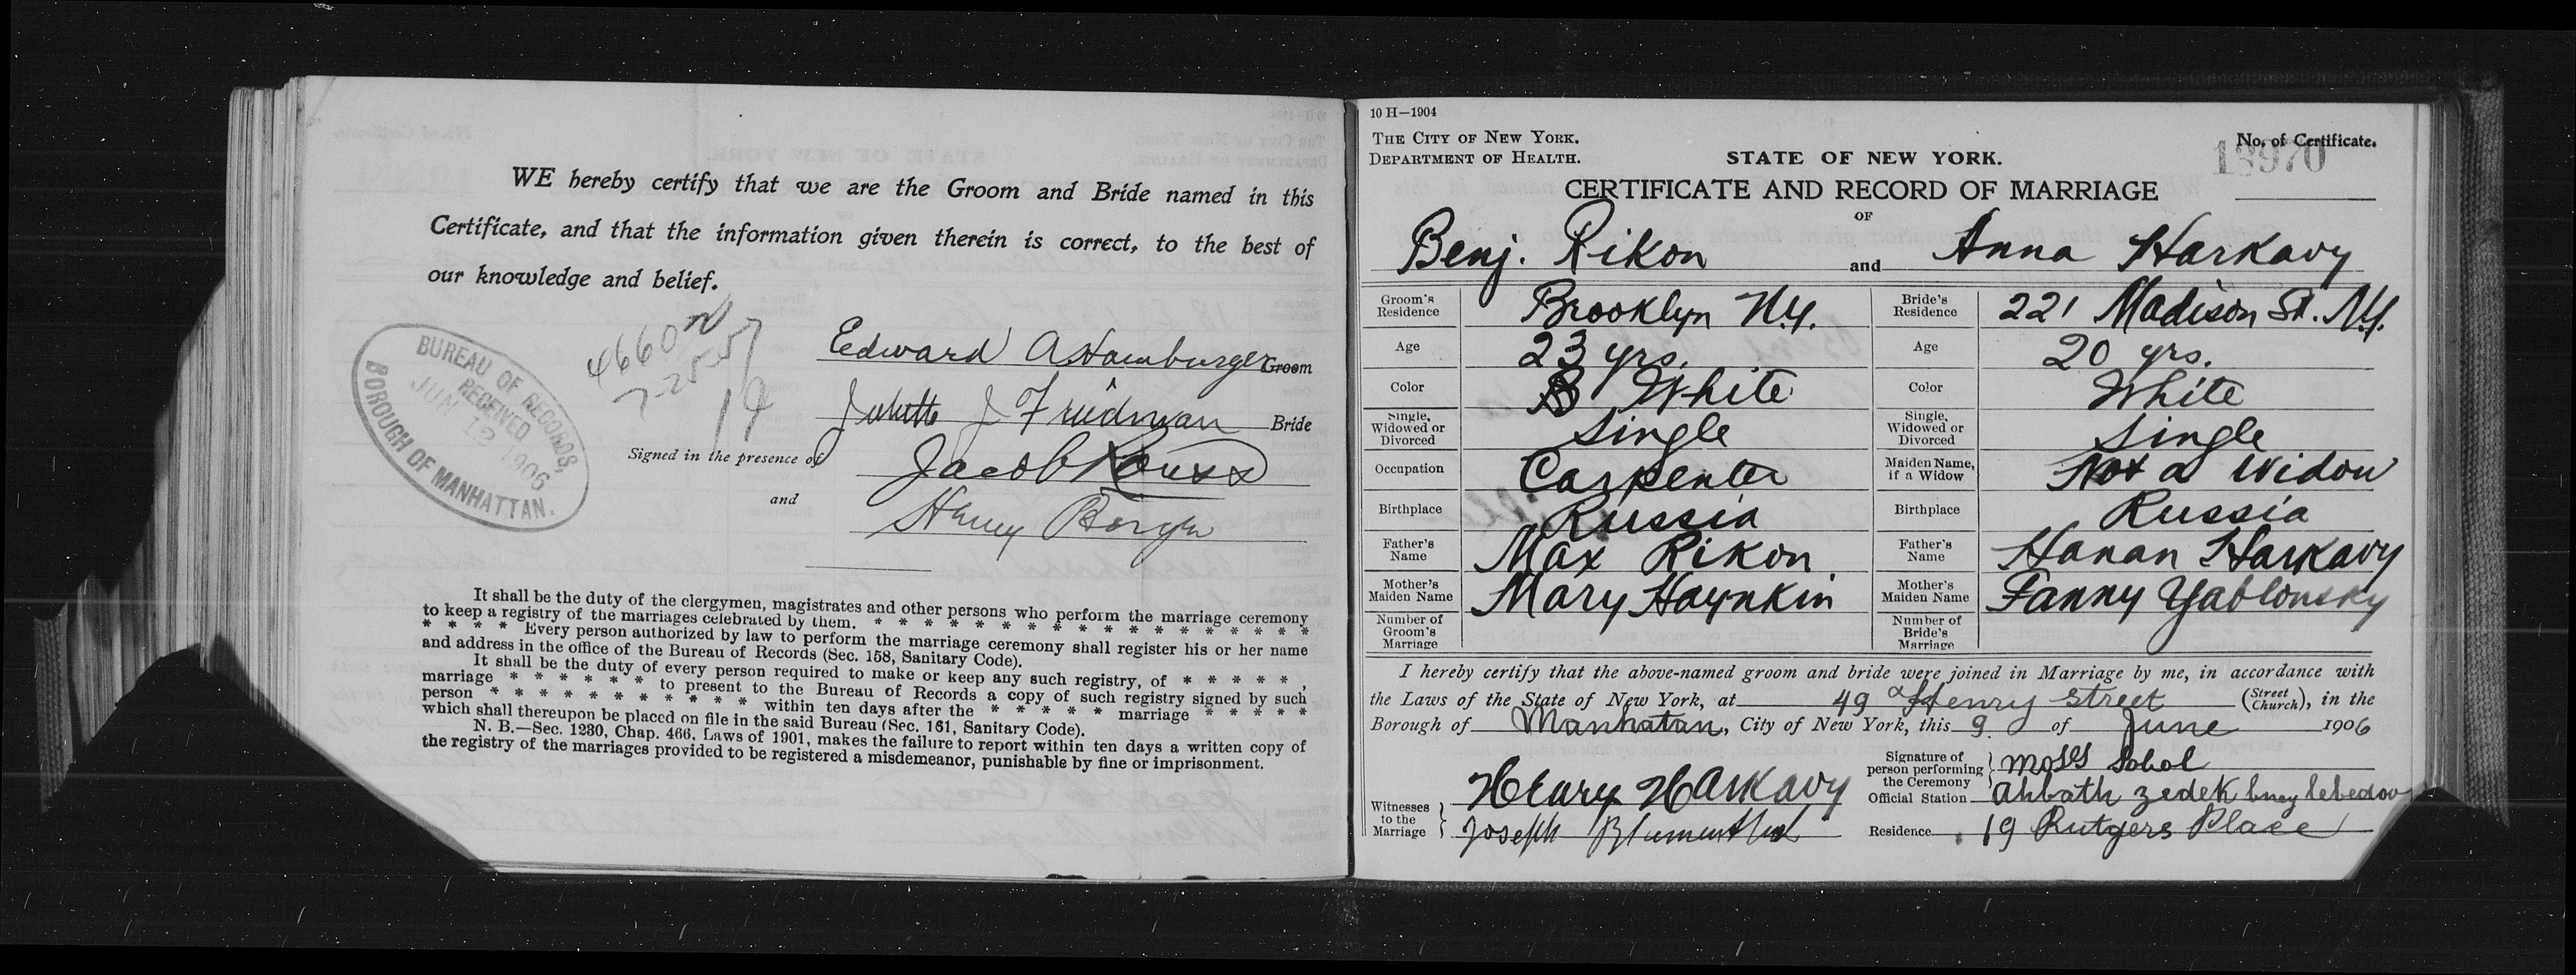 WE hereby certify that we are the Groom and Bride named in this
Certificate, and that the information given therein is correct, to the best of
our knowledge and belief.
4660 N
7-25-57
19
BUREAU OF RECORDS,
RECEIVED
JUN 12 1906
BOROUGH OF MANHATTAN.
Edward A Hamburger Groom
Juliette J Friedman Bride
Signed in the presence of Jacob
and Henry
It shall be the duty of the clergymen, magistrates and other persons who perform the marriage ceremony
to keep a registry of the marriages celebrated by them. * * * * * * * * * * * * * * * * * *
* * * * Every person authorized by law to perform the marriage ceremony shall register his or her name
and address in the office of the Bureau of Records (Sec. 158, Sanitary Code).
It shall be the duty of every person required to make or keep any such registry, of * * * * * ,
marriage * * * * * * to present to the Bureau of Records a copy of such registry signed by such
person * * * * * * * * * * * within ten days after the * * * * * marriage * * * * *
which shall thereupon be placed on file in the said Bureau (Sec. 161, Sanitary Code).
N. B.—Sec. 1230, Chap. 466, Laws of 1901, makes the failure to report within ten days a written copy of
the registry of the marriages provided to be registered a misdemeanor, punishable by fine or imprisonment.
10 H—1904
THE CITY OF NEW YORK.
DEPARTMENT OF HEALTH.
STATE OF NEW YORK.
No. of Certificate.
13970
CERTIFICATE AND RECORD OF MARRIAGE
OF
Benj. Rikon and Anna Harkavy
Groom's Residence Brooklyn N.Y. Bride's Residence 221 Madison St. N.Y.
Age 23 yrs. Age 20 yrs.
Color White Color White
Single, Widowed or Divorced Single Single, Widowed or Divorced Single
Occupation Carpenter Maiden Name, if a Widow Not a Widow
Birthplace Russia Birthplace Russia
Father's Name Max Rikon Father's Name Hanan Harkavy
Mother's Maiden Name Mary Haynkin Mother's Maiden Name Fanny Yablonsky
Number of Groom's Marriage Number of Bride's Marriage
I hereby certify that the above-named groom and bride were joined in Marriage by me, in accordance with
the Laws of the State of New York, at 49 Henry Street (Street Church), in the
Borough of Manhatan, City of New York, this 9. of June 1906
Signature of person performing the Ceremony Moses Sohol
Witnesses to the Marriage Henry Harkavy Official Station Ahbath zedek bney lebedow
Joseph Blumenthal Residence 19 Rutgers Place